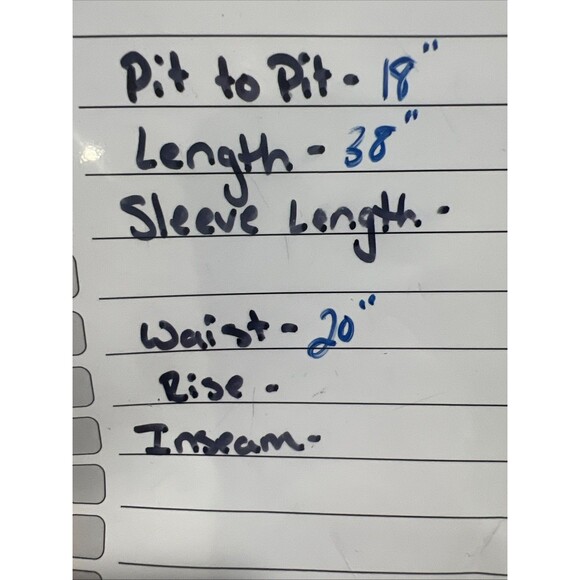 Pit to Pit - 18"
Length - 38"
Sleeve Length -
Waist - 20"
Rise -
Inseam -